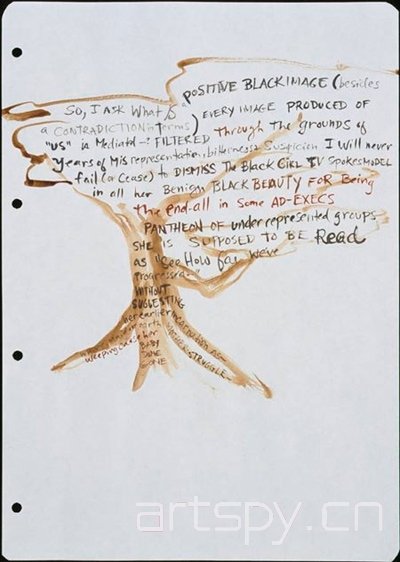 POSITIVE BLACK IMAGE (besides
SO, I ASK What is a
a CONTRADICTION in terms) EVERY IMAGE PRODUCED OF
"US" is Mediated—: FILTERED Through The grounds of
years of Misrepresentation, bitterness, Suspicion I Will never
fail (or Cease) to DISMISS The BLACK GIRL TV SPOKESMODEL
in all her Benign BLACK BEAUTY FOR Being
the end-all in some AD-EXECS
PANTHEON OF underrepresented groups
SHE IS SUPPOSED TO BE Read
as "See How far We've
progressed"
WITHOUT
SUGGESTING
her earlier incarnation as
Mother STRUGGLE
weeping cause her
BABY
DONE
GONE
artspy.cn